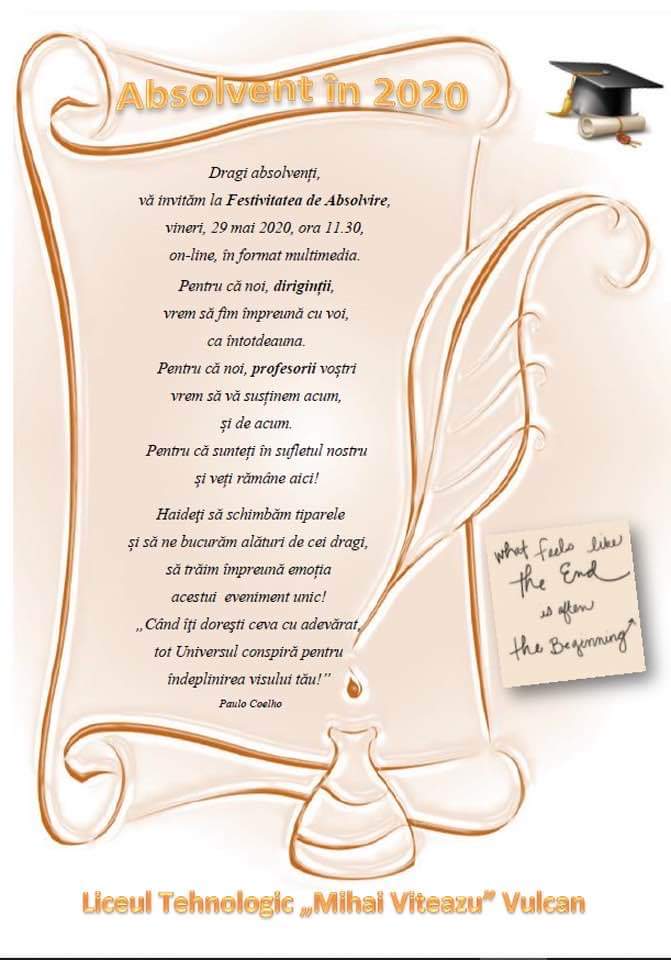 Absolvent în 2020
Dragi absolvenți,
vă invităm la Festivitatea de Absolvire,
vineri, 29 mai 2020, ora 11.30,
on-line, în format multimedia.
Pentru că noi, diriginții,
vrem să fim împreună cu voi,
ca întotdeauna.
Pentru că noi, profesorii voștri
vrem să vă susținem acum,
și de acum.
Pentru că sunteți în sufletul nostru
și veți rămâne aici!
Haideți să schimbăm tiparele
și să ne bucurăm alături de cei dragi,
să trăim împreună emoția
acestui eveniment unic!
„Când îţi doreşti ceva cu adevărat,
tot Universul conspiră pentru
îndeplinirea visului tău!”
Paulo Coelho
what feels like
the End
is often
the Beginning
Liceul Tehnologic „Mihai Viteazu” Vulcan